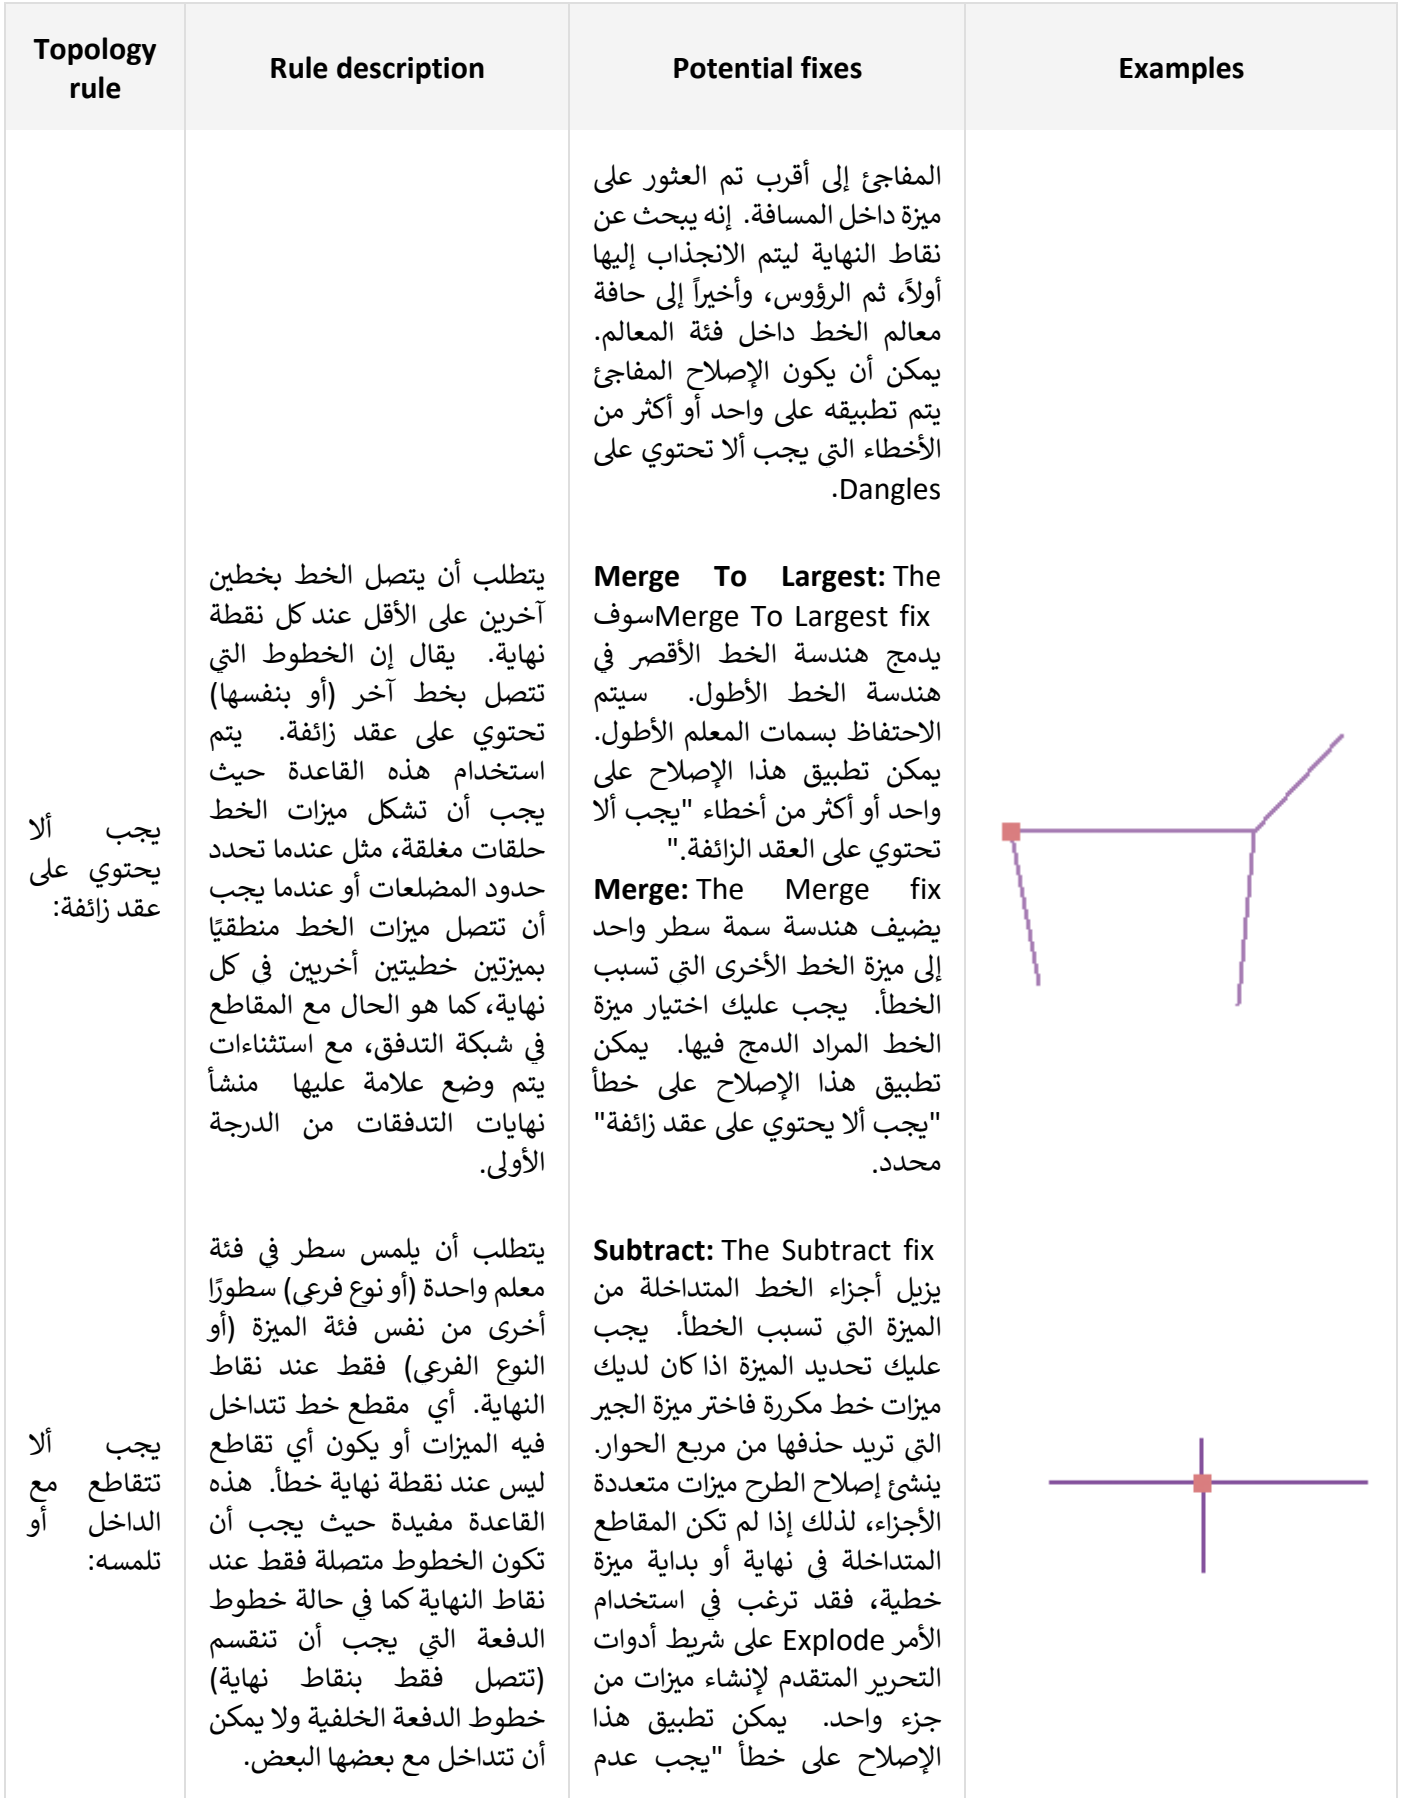 Topology
rule
Rule description
Potential fixes
Examples
المفاجئ إلى أقرب تم العثور على
ميزة داخل المسافة. إنه يبحث عن
نقاط النهاية ليتم الانجذاب إليها
أولاً، ثم الرؤوس، وأخيراً إلى حافة
معالم الخط داخل فئة المعالم.
يمكن أن يكون الإصلاح المفاجئ
يتم تطبيقه على واحد أو أكثر من
الأخطاء التي يجب ألا تحتوي على
Dangles.
يجب ألا
يحتوي على
عقد زائفة:
يتطلب أن يتصل الخط بخطين
آخرين على الأقل عند كل نقطة
نهاية. يقال إن الخطوط التي
تتصل بخط آخر (أو بنفسها)
تحتوي على عقد زائفة. يتم
استخدام هذه القاعدة حيث
يجب أن تشكل ميزات الخط
حلقات مغلقة، مثل عندما تحدد
حدود المضلعات أو عندما يجب
أن تتصل ميزات الخط منطقيًا
بميزتين خطيتين أخريين في كل
نهاية، كما هو الحال مع المقاطع
في شبكة التدفق، مع استثناءات
يتم وضع علامة عليها منشأ
نهايات التدفقات من الدرجة
الأولى.
Merge To Largest: The
Merge To Largest fix سوف
يدمج هندسة الخط الأقصر في
هندسة الخط الأطول. سيتم
الاحتفاظ بسمات المعلم الأطول.
يمكن تطبيق هذا الإصلاح على
واحد أو أكثر من أخطاء "يجب ألا
تحتوي على العقد الزائفة."
Merge: The Merge fix
يضيف هندسة سمة سطر واحد
إلى ميزة الخط الأخرى التي تسبب
الخطأ. يجب عليك اختيار ميزة
الخط المراد الدمج فيها. يمكن
تطبيق هذا الإصلاح على خطأ
"يجب ألا يحتوي على عقد زائفة"
محدد.
يجب ألا
تتقاطع مع
الداخل أو
تلمسه:
يتطلب أن يلمس سطر في فئة
معلم واحدة (أو نوع فرعي) سطورًا
أخرى من نفس فئة الميزة (أو
النوع الفرعي) فقط عند نقاط
النهاية. أي مقطع خط تتداخل
فيه الميزات أو يكون أي تقاطع
ليس عند نقطة نهاية خطأ. هذه
القاعدة مفيدة حيث يجب أن
تكون الخطوط متصلة فقط عند
نقاط النهاية كما في حالة خطوط
الدفعة التي يجب أن تنقسم
(تتصل فقط بنقاط نهاية)
خطوط الدفعة الخلفية ولا يمكن
أن تتداخل مع بعضها البعض.
Subtract: The Subtract fix
يزيل أجزاء الخط المتداخلة من
الميزة التي تسبب الخطأ. يجب
عليك تحديد الميزة اذا كان لديك
ميزات خط مكررة فاختر ميزة الجير
التي تريد حذفها من مربع الحوار.
ينشئ إصلاح الطرح ميزات متعددة
الأجزاء، لذلك إذا لم تكن المقاطع
المتداخلة في نهاية أو بداية ميزة
خطية، فقد ترغب في استخدام
الأمر Explode على شريط أدوات
التحرير المتقدم لإنشاء ميزات من
جزء واحد. يمكن تطبيق هذا
الإصلاح على خطأ "يجب عدم